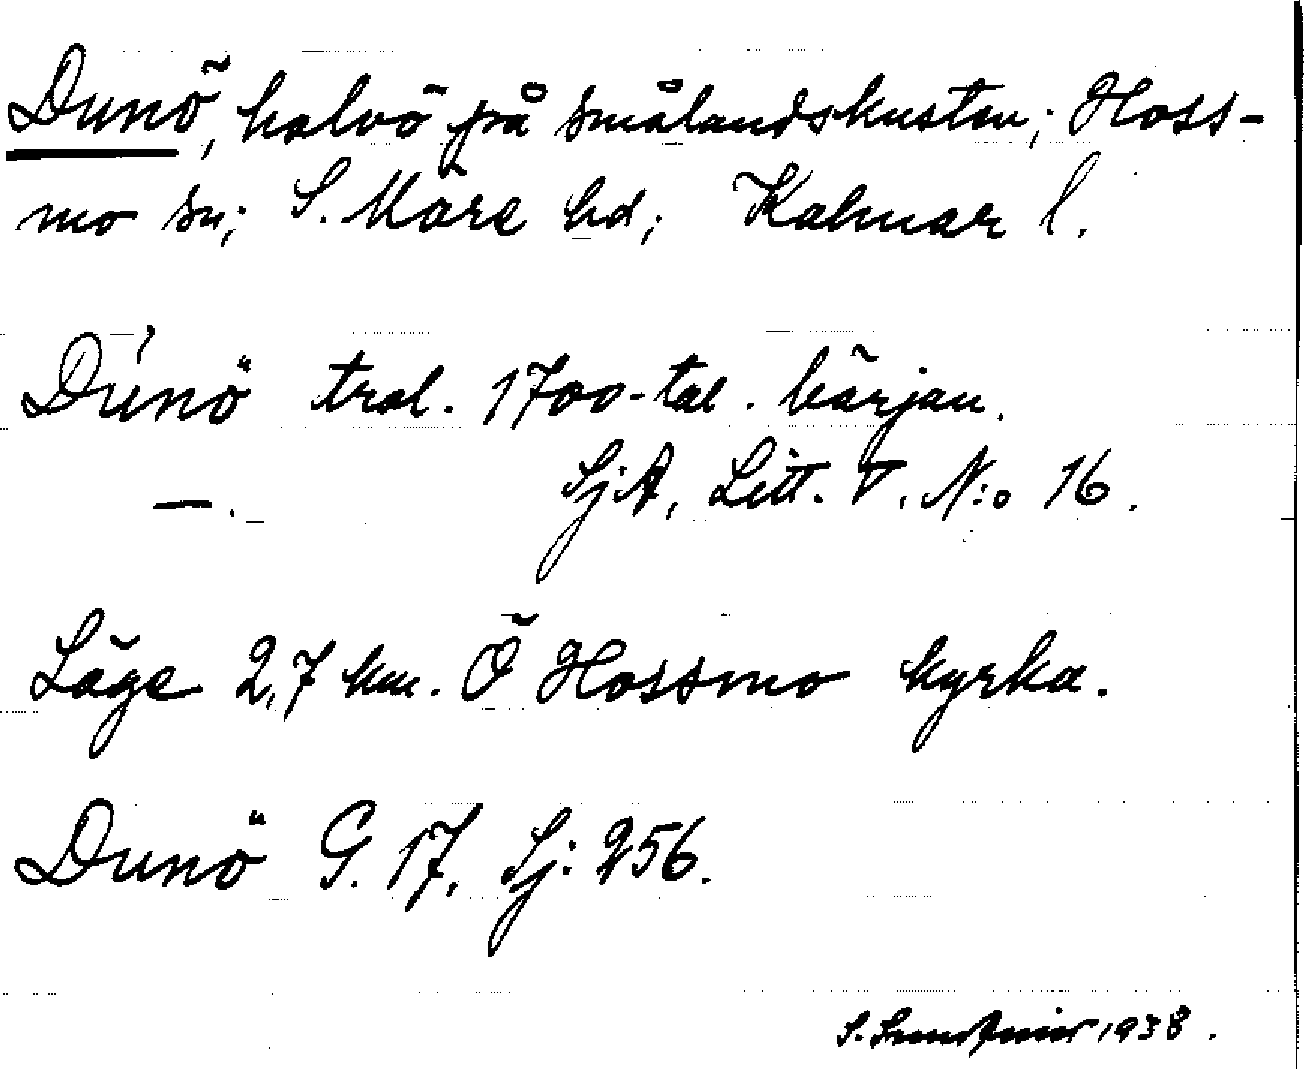 Dunö, halvö på smålandskusten; Hoss-
mo sn; S. Möre hd; Kalmar l.
Dünö trol. 1700-tal. början.
—. SjA, Litt. V. N:o 16.
Läge 2,7 km. Ö Hossmo kyrka.
Dunö G. 17, Sj: 256.
S. 1938.